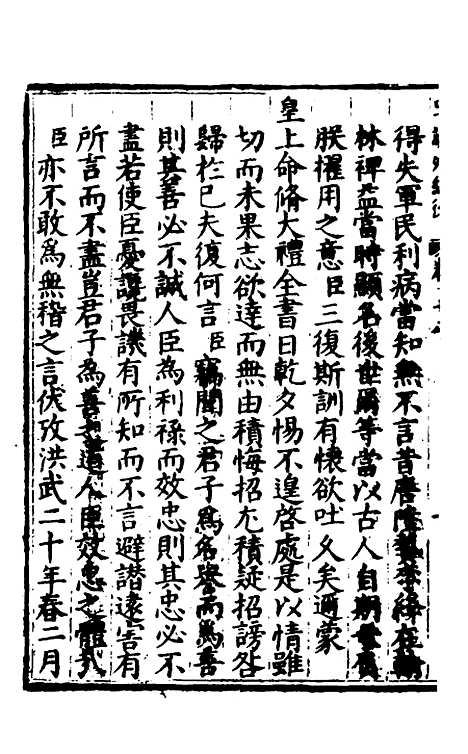 得失軍民利病當知無不言昔唐陸贄李絳在翰
林裨益當時顯名後世爾等當以古人自期毋負
朕擢用之意臣三復斯訓有懷欲吐久矣邇蒙
皇上命脩大禮全書日乾夕惕不遑啓處是以情雖
切而未果志欲達而無由積悔招尤積疑招謗咎
歸於已夫復何言臣竊聞之君子爲名譽而爲善
則其善必不誠人臣爲利祿而效忠則其忠必不
盡若使臣憂讒畏譏有所知而不言避譖遠害有
所言而不盡豈君子爲善之道人臣效忠之體哉
臣亦不敢爲無稽之言伏攷洪武二十年春二月